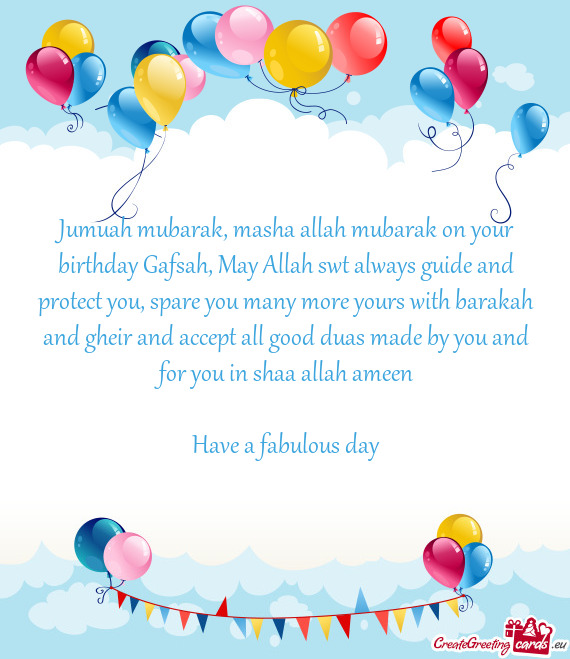 Jumuah mubarak, masha allah mubarak on your
birthday Gafsah, May Allah swt always guide and
protect you, spare you many more yours with barakah
and gheir and accept all good duas made by you and
for you in shaa allah ameen
Have a fabulous day
CreateGreetingcards.eu